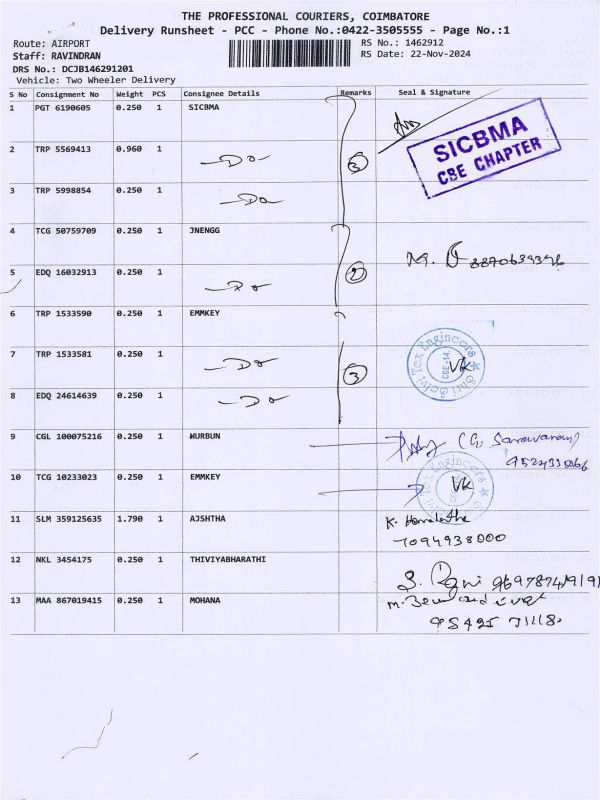 THE PROFESSIONAL COURIERS, COIMBATORE
Delivery Runsheet - PCC - Phone No.:0422-3505555 - Page No.:1
Route: AIRPORT RS No.: 1462912
Staff: RAVINDRAN RS Date: 22-Nov-2024
DRS No.: DCJB146291201
Vehicle: Two Wheeler Delivery
S No Consignment No Weight PCS Consignee Details Remarks Seal & Signature
1 PGT 6190605 0.250 1 SICBMA
SICBMA
CBE CHAPTER
2 TRP 5569413 0.960 1 Do 3
3 TRP 5998854 0.250 1 Do
4 TCG 50759709 0.250 1 JNENGG
5 EDQ 16032913 0.250 1 Do 2
6 TRP 1533590 0.250 1 EMMKEY
7 TRP 1533581 0.250 1 Do 3
Shri Selvi Tex Engineers
CBE-14
VK
8 EDQ 24614639 0.250 1 Do
9 CGL 100075216 0.250 1 WURBUN (G. Saravanan)
10 TCG 10233023 0.250 1 EMMKEY
Engineers
VK
11 SLM 359125635 1.790 1 AJSHTHA K. Hemalatha
7094938000
12 NKL 3454175 0.250 1 THIVIYABHARATHI
13 MAA 867019415 0.250 1 MOHANA